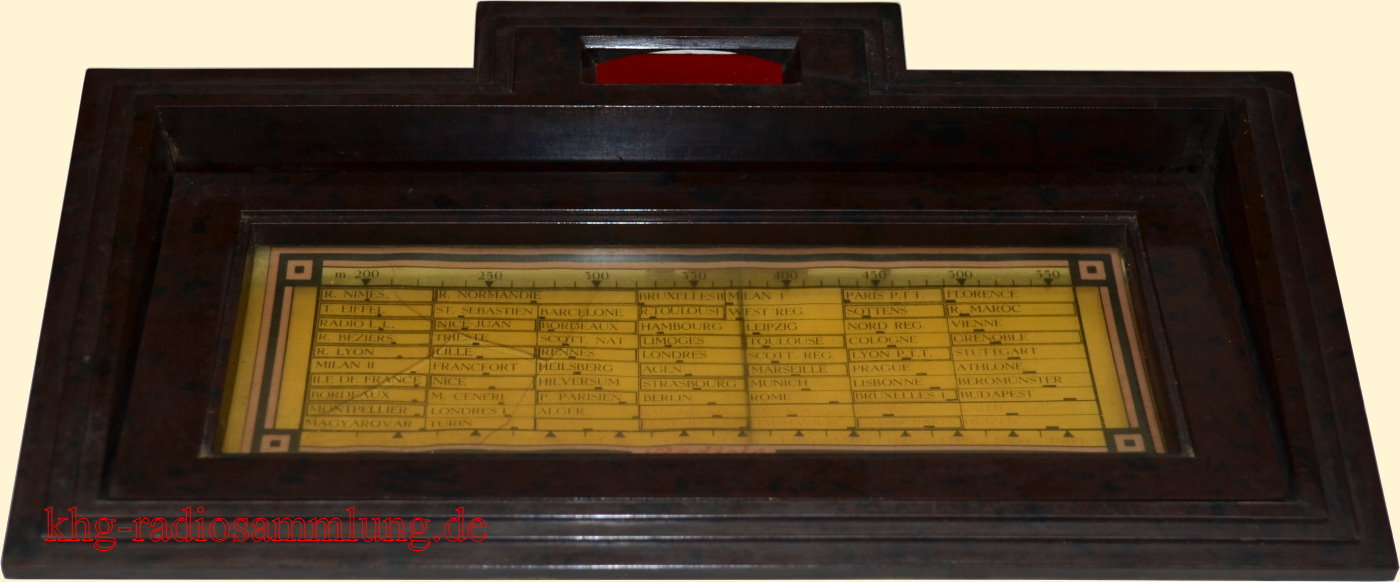 m. 200 250 300 350 400 450 500 550
R. NIMES R. NORMANDIE BRUXELLES II MILAN I PARIS P.T.T. FLORENCE
T. EIFFEL ST. SEBASTIEN BARCELONE R. TOULOUSE WEST REG. SOTTENS R. MAROC
RADIO L.L. NICE-JUAN BORDEAUX HAMBOURG LEIPZIG NORD REG. VIENNE
R. BEZIERS TRIESTE SCOTT. NAT. LIMOGES TOULOUSE COLOGNE GRENOBLE
R. LYON LILLE RENNES LONDRES SCOTT. REG. LYON P.T.T. STUTTGART
MILAN II FRANCFORT HEILSBERG AGEN MARSEILLE PRAGUE ATHLONE
ILE DE FRANCE NICE HILVERSUM STRASBOURG MUNICH LISBONNE BEROMUNSTER
BORDEAUX M. CENERI P. PARISIEN BERLIN ROME BRUXELLES I BUDAPEST
MONTPELLIER LONDRES ALGER
MAGYAROVAR TURIN
khg-radiosammlung.de